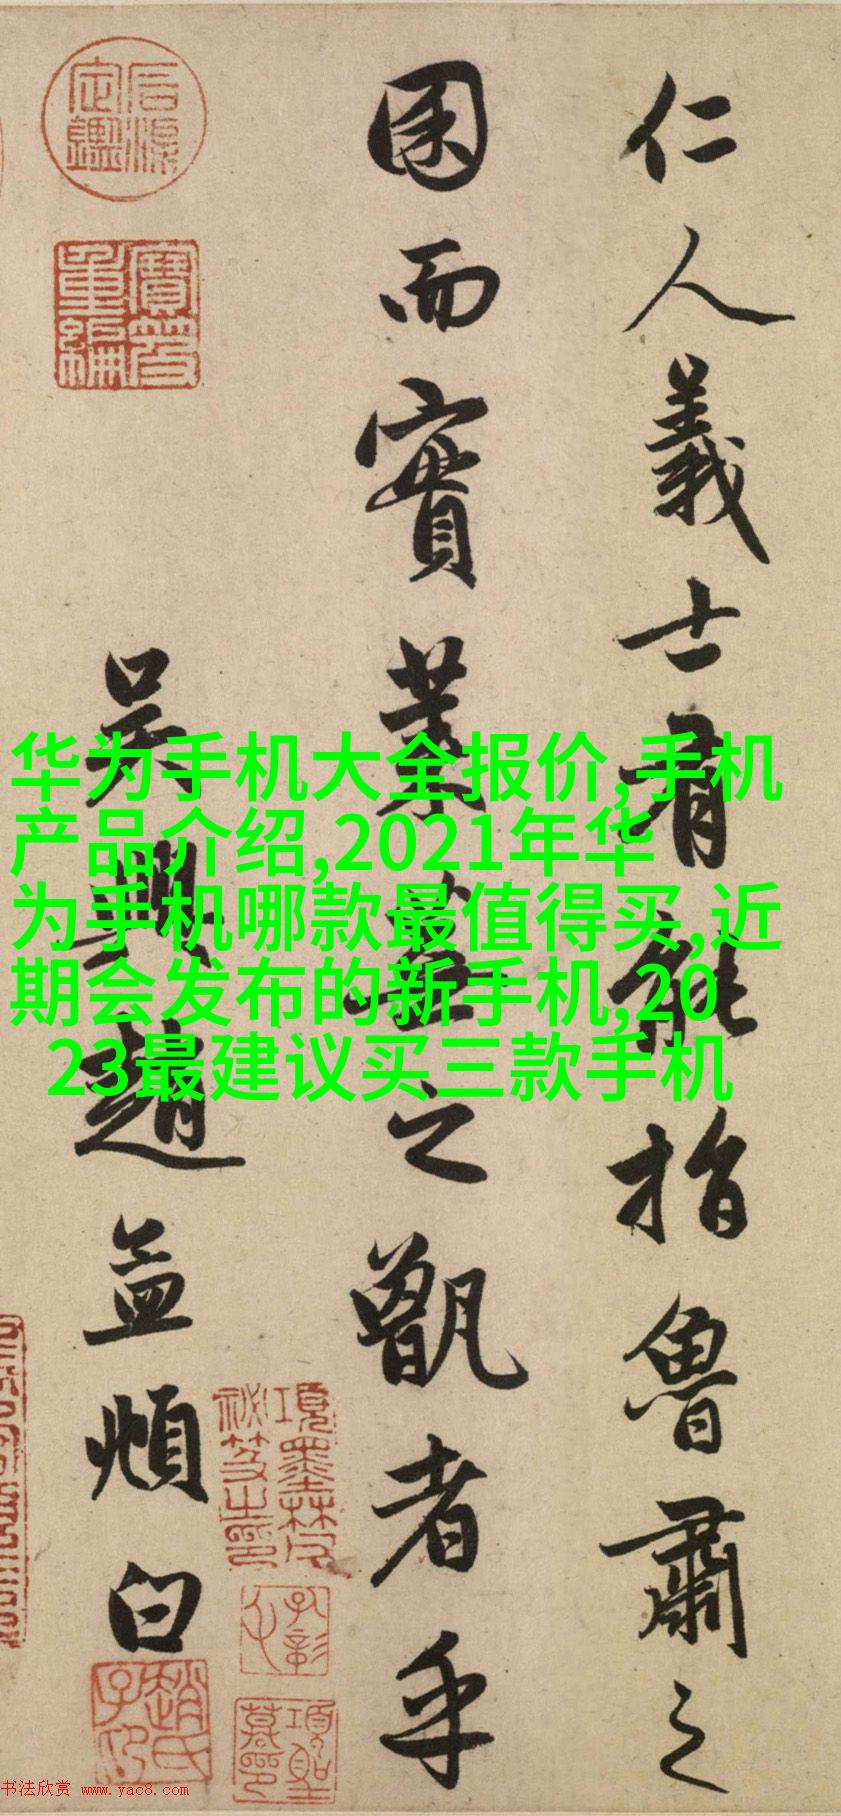 仁人義士有能指魯肅之
囷而實萊蕪之甑者乎
吴興趙孟頫白
华为手机大全报价,手机
产品介绍,2021年华
为手机哪款最值得买,近
期会发布的新手机,20
23最建议买三款手机
趙氏子印
书法欣赏 www.yac8.com